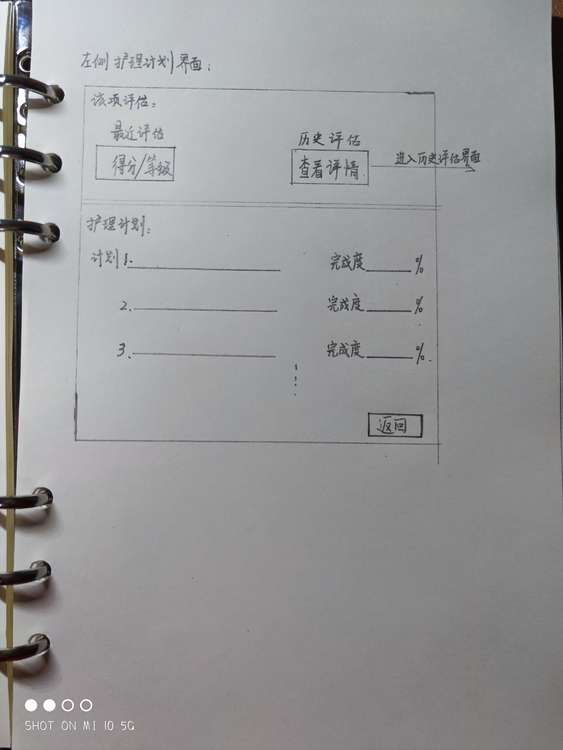 左侧护理计划界面：
该项评估：
最近评估 历史评估
得分/等级 查看详情 进入历史评估界面
护理计划：
计划1. 完成度 %
2. 完成度 %
3. 完成度 %.
返回
SHOT ON MI 10 5G